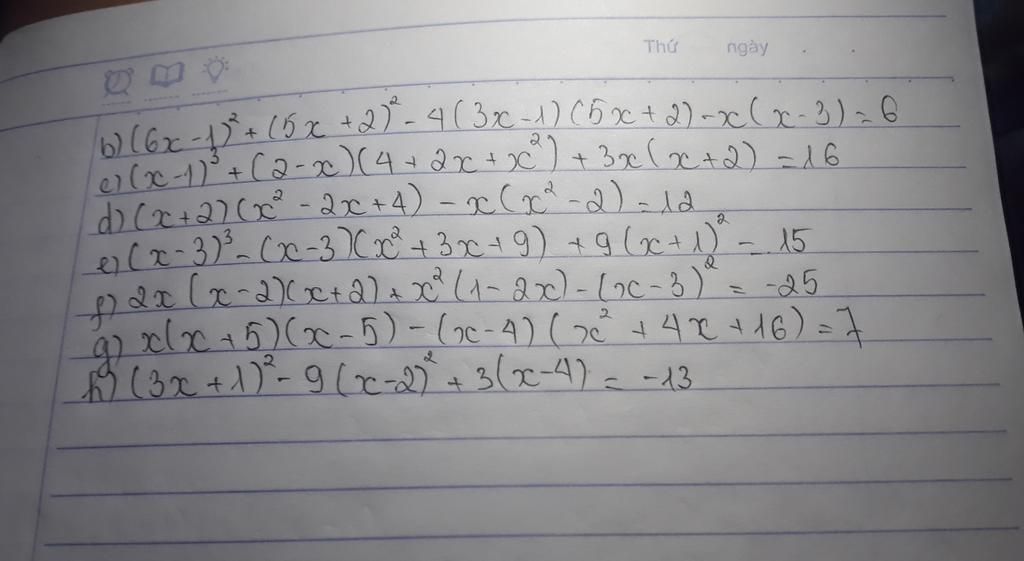 Thứ ngày . .
b) (6x - 1)² + (5x + 2)² - 4(3x - 1)(5x + 2) - x(x - 3) = 6
c) (x - 1)³ + (2 - x)(4 + 2x + x²) + 3x(x + 2) = 16
d) (x + 2)(x² - 2x + 4) - x(x² - 2) = 12
e) (x - 3)³ - (x - 3)(x² + 3x + 9) + 9(x + 1)² - 15
f) 2x(x - 2)(x + 2) + x²(1 - 2x) - (x - 3)² = -25
g) x(x + 5)(x - 5) - (x - 4)(x² + 4x + 16) = 7
h) (3x + 1)² - 9(x - 2)² + 3(x - 4) = -13